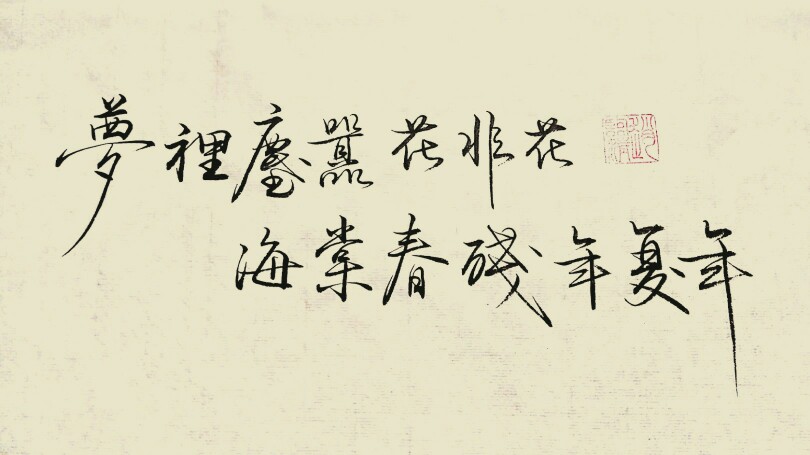 夢裡塵囂花非花
海棠春殘年复年